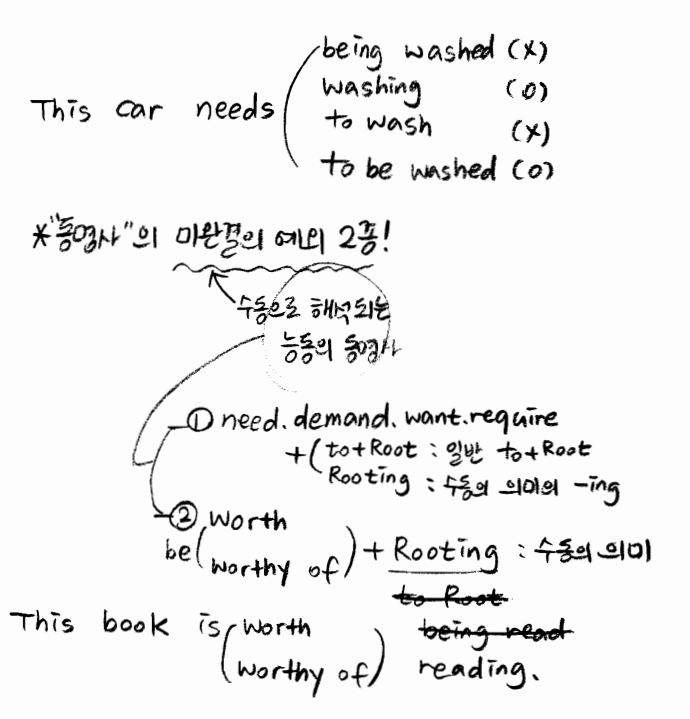 being washed (x)
washing (o)
This car needs
to wash (x)
to be washed (o)
*"동명사"의 미완결의 예외 2종!
수동으로 해석되는
능동의 동명사
① need. demand. want. require
+ ( to+Root : 일반 to+Root
Rooting : 수동의 의미의 -ing
② worth
be ( worthy of ) + Rooting : 수동의 의미
to Root
This book is ( worth being read
worthy of ) reading.